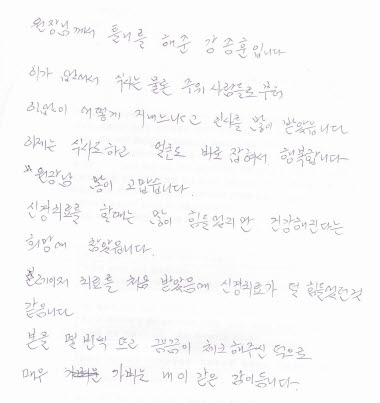 원장님께서 틀니를 해준 강종훈입니다
이가 없어서 식사는 물론 주위 사람들로부터
이없이 어떻게 지내느냐고 인사를 많이 받았읍니다
이제는 식사도하고 얼굴도 바로 잡혀서 행복합니다
원장님 많이 고맙습니다.
신경치료를 할때는 많이 힘들었지만 건강해진다는
희망에 참았읍니다.
레이저 치료를 처음 받았음에 신경치료가 덜 힘들었던것
같음니다
본을 몇번씩 뜨고 꼼꼼이 체크해주신 덕으로
매우 가벼운 내 이 같은 감이듭니다.